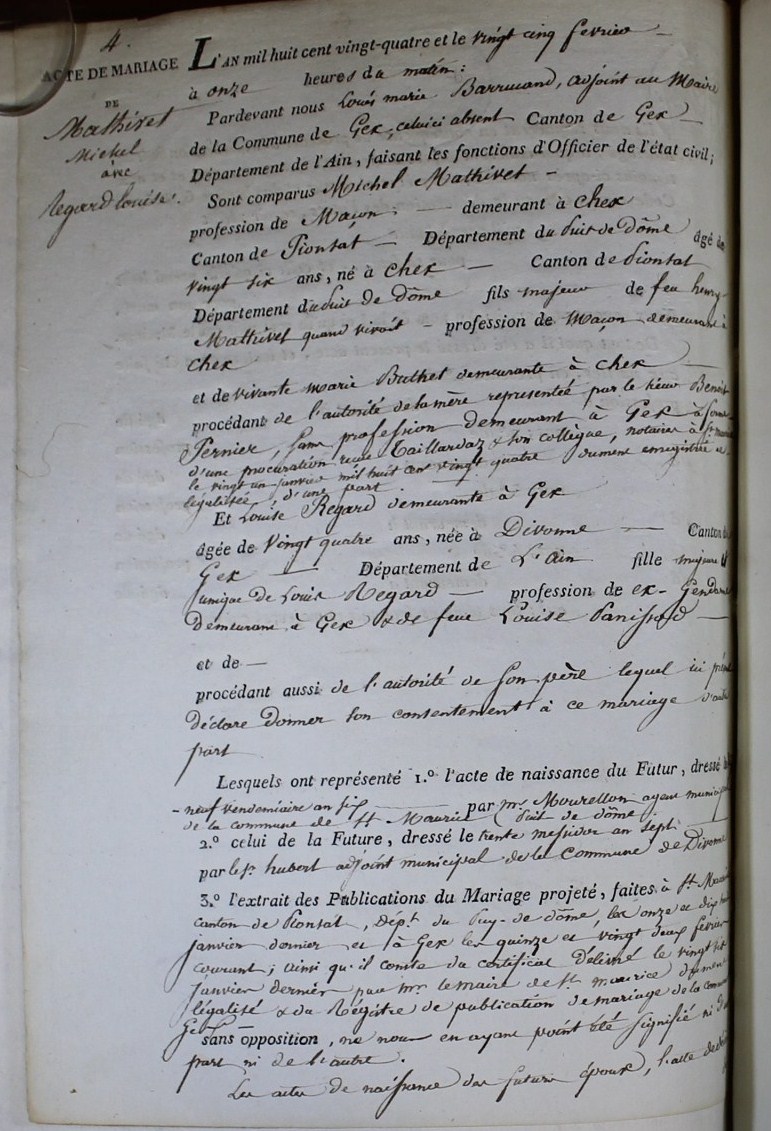 4.
ACTE DE MARIAGE
DE
Mathivet
Michel
avec
Regard louise.
L'AN mil huit cent vingt-quatre et le vingt cinq fevrier
à onze heures du matin :
Pardevant nous Louis marie Barruand, adjoint au Maire
de la Commune de Gex, celui ci absent Canton de Gex
Département de l'Ain, faisant les fonctions d'Officier de l'état civil;
Sont comparus Michel Mathivet
profession de Maçon demeurant à Chex
Canton de Pionsat Département du Puit de Dôme âgé de
vingt six ans, né à Chex Canton de Pionsat
Département du Puit de Dôme fils majeur de feu henry
Mathivet quand vivoit profession de Maçon demeurant à
Chex
et de vivante marie Buthet demeurante à Chex
procédant de l'autorité de la mère representée par le sieur Benoit
Pernier, sans profession demeurant à Gex à forme
d'une procuration reçue Taillardaz & son collègue, notaires à St
le vingt un janvier mil huit cent vingt quatre dument enregistrée et
légalisée, d'une part
Et Louise Regard demeurante à Gex
âgée de vingt quatre ans, née à Divonne Canton de
Gex Département de L'Ain fille majeure &
unique de Louis Regard profession de ex-Gendarme
demeurant à Gex & de feue Louise Panissod
et de
procédant aussi de l'autorité de son père lequel ici
déclare donner son consentement à ce mariage d'autre
part
Lesquels ont représenté 1.º l'acte de naissance du Futur, dressé le
neuf vendemiaire an six par mr Mourellon agent municipal
de la commune de St Maurice (Puit de dôme)
2.º celui de la Future, dressé le trente messidor an sept
par le sr. hubert adjoint municipal de la Commune de Divonne
3.º l'extrait des Publications du Mariage projeté, faites à St Maurice
canton de Pionsat, Dépt. du Puy-de dôme, les onze et dix huit
janvier dernier et à Gex les quinze et vingt deux fevrier
courant; ainsi qu'il conste du certificat délivré le vingt
janvier dernier par mr le maire de St maurice dument
légalisé & du Régistre de publication de mariage de la commune
Gex sans opposition, ne nous en ayant point été signifié ni d'une
part ni de l'autre.
Les actes de naissance des futurs époux, l'acte de